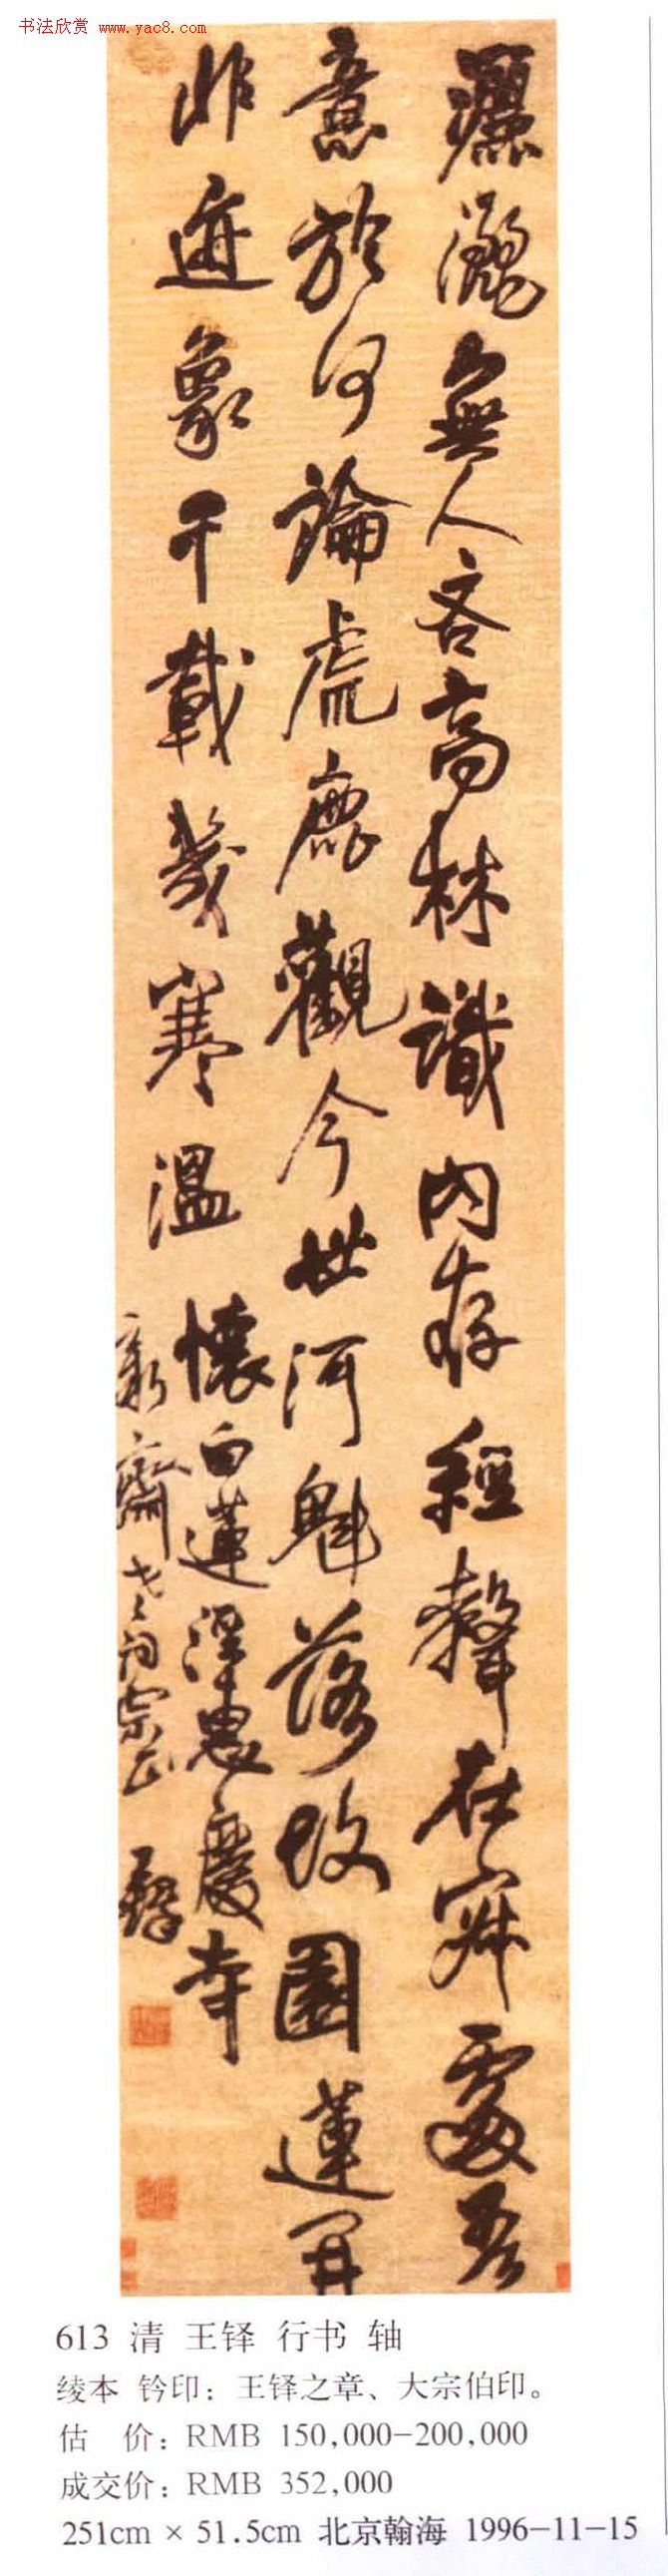 书法欣赏 www.yac8.com
灑無人吝高林識內存經聲在寐處吾
意於何論虎鹿觀今世河魁落故園蓮開
非迹象千載幾寒溫
懷白蓮涅惠慶寺
新齋老詞宗正 鐸
613 清 王铎 行书 轴
绫本 钤印：王铎之章、大宗伯印。
估 价：RMB 150,000-200,000
成交价：RMB 352,000
251cm × 51.5cm 北京翰海 1996-11-15